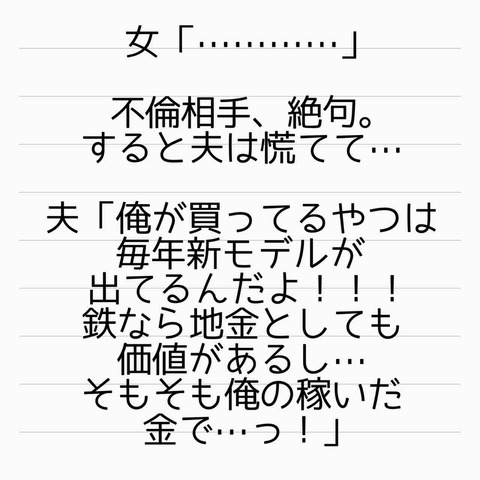 女「…………」
不倫相手、絶句。
すると夫は慌てて…
夫「俺が買ってるやつは
毎年新モデルが
出てるんだよ！！！
鉄なら地金としても
価値があるし…
そもそも俺の稼いだ
金で…っ！」